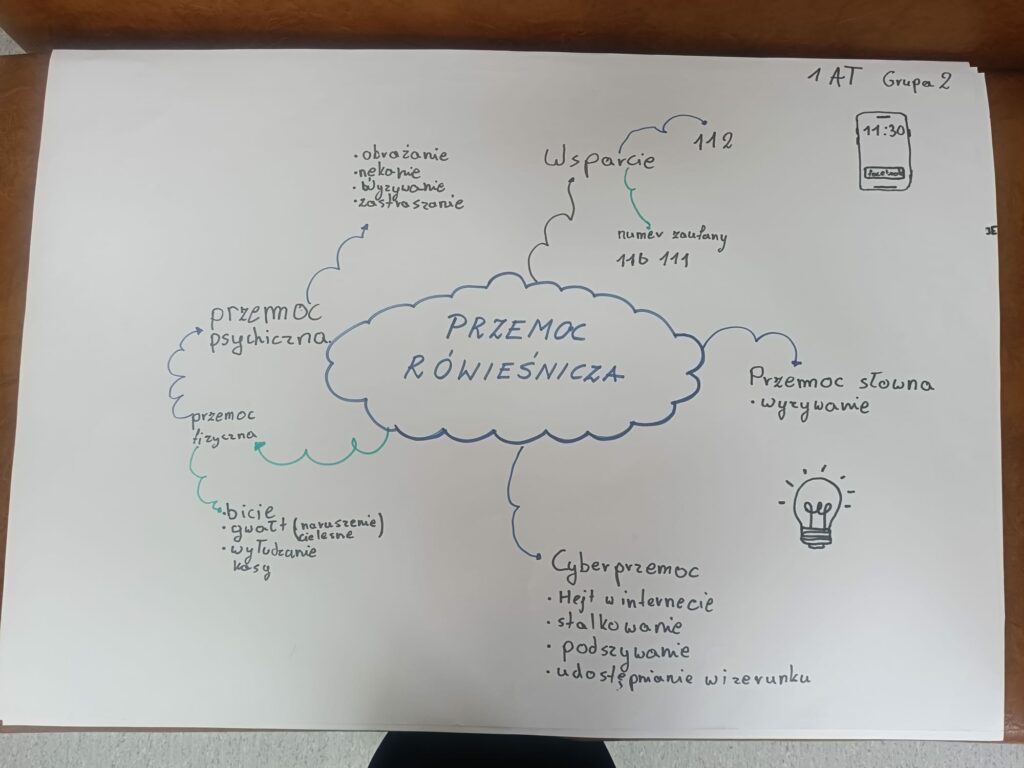 1 AT Grupa 2
11:30
facebook
PRZEMOC
RÓWIEŚNICZA
Wsparcie
112
numer zaufany
116 111
Przemoc słowna
• wyzywanie
Cyberprzemoc
• Hejt w internecie
• stalkowanie
• podszywanie
• udostępnianie wizerunku
przemoc
fizyczna
• bicie
• gwałt (naruszenie
cielesne)
• wyłudzanie
kasy
przemoc
psychiczna
• obrażanie
• nękanie
• wyzywanie
• zastraszanie